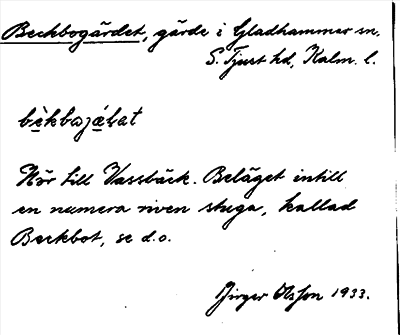 Beckbogärdet, gärde i Gladhammar sn.
S. Tjust hd, Kalm. l.
Hör till Vassbäck. Beläget intill
en numera riven stuga, kallad
Beckbot, se d.o.
Birger Olsson 1933.